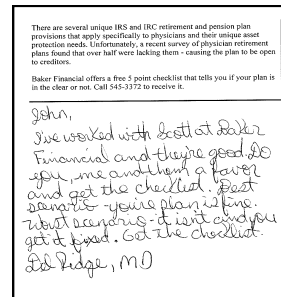 There are several unique IRS and IRC retirement and pension plan
provisions that apply specifically to physicians and their unique asset
protection needs. Unfortunately, a recent survey of physician retirement
plans found that over half were lacking them - causing the plan to be open
to creditors.
Baker Financial offers a free 5 point checklist that tells you if your plan is
in the clear or not. Call 545-3372 to receive it.
John,
I've worked with Scott at Baker
Financial and they're good. Do
you, me and them a favor
and get the checklist. Best
scenario - you're plan is fine.
Worst scenario - it isn't and you
get it fixed. Get the checklist.
Ridge, MD